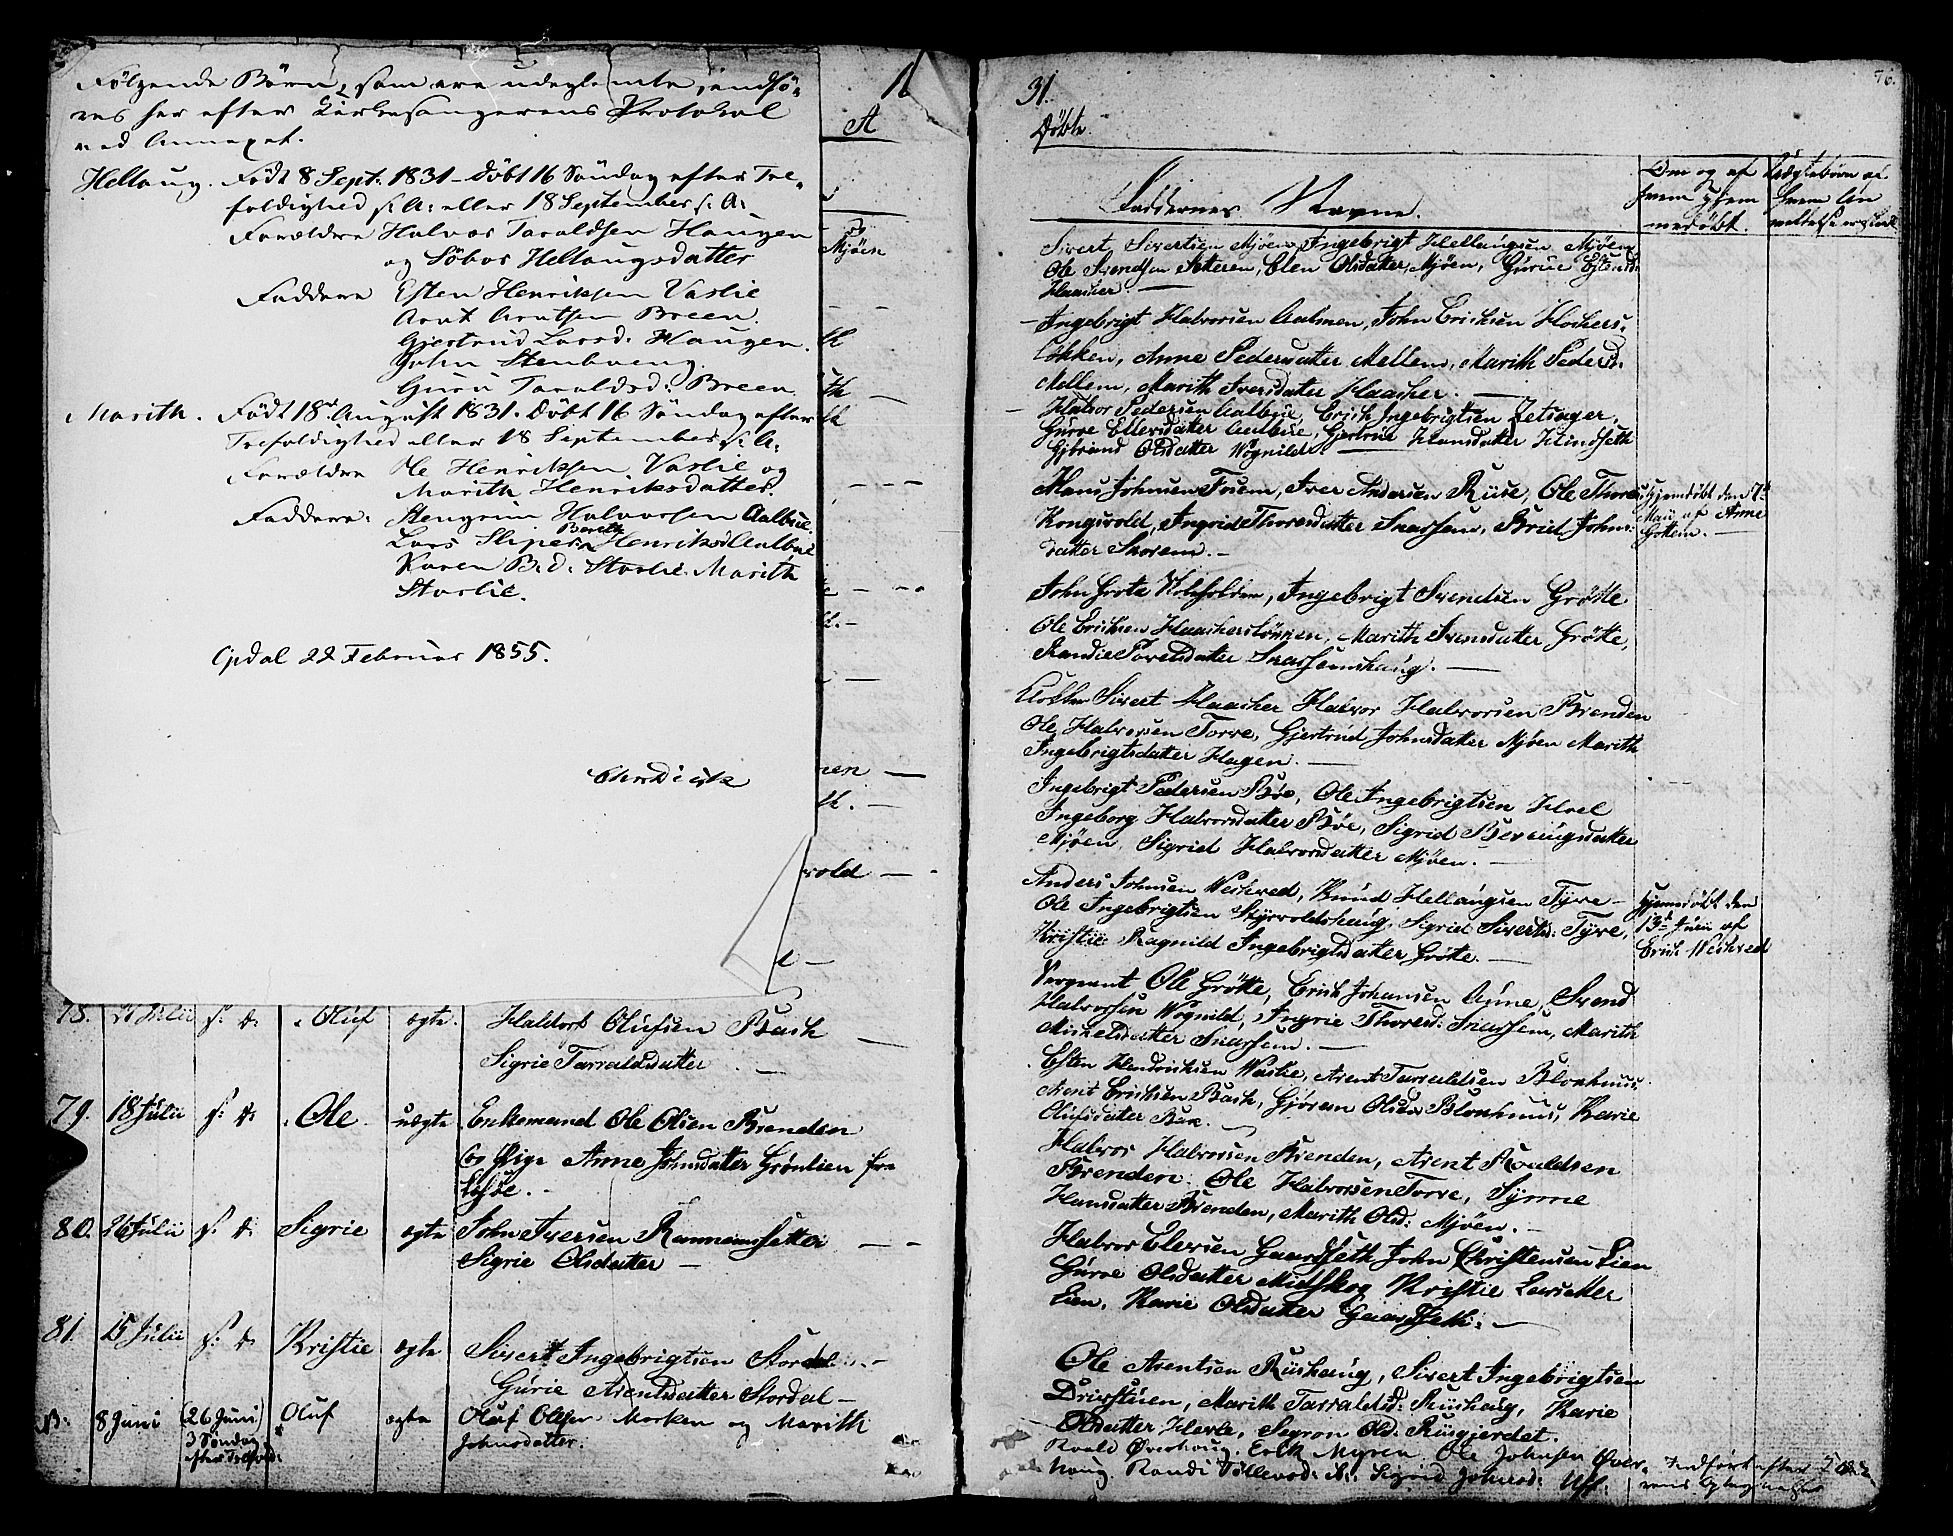 Følgende Børn, som ere udeglemte, indfø-
res her efter Kirkesangerens Protokol
ved Annexet.
Hellaug. Født 8 Sept. 1831 – Døbt 16 Søndag efter Tre-
foldighed s: A: eller 18 September s: A:
Forældre Halvor Taraldsen Haugen
og Søbor Hellaugsdatter
Faddere Esten Henriksen Vaslie
Arnt Arntsen Breen.
Gjertrud Larsd: Haugen.
John Stenboeng
Guru Taraldsd: Breen.
Marith. Født 18de August 1831. Døbt 16 Søndag efter
Trefoldighed eller 18 September s: A:
Forældre Ole Henriksen Vaslie og
Marith Henriksdatter.
Faddere: Stengrim Halvorsen Aalbue.
Lars Slipern Berith Henriksd Aalbue
Karen B.d. Storlie. Marith
Storlie.
Opdal 22 Februar 1855.
A
og
Mjøen
th
th
th
nen —
th. —
vold —
78. Julii s: D. Oluf ægte. Haldort Olufsen Bach —
Sigrie Tarraldsdatter —
79. 18 Julii s: D. Ole uægte Enkemand Ole Olsen Brenden
og Pige Anne Johnsdatter Grønlien fra
Lesjøe.
80. 26 Julii s: D. Sigrie ægte John Iversen Rønningssetter
Sigrie Olsdatter —
81. 15 Julii s: D. Kristie ægte Sivert Ingebrigtsen Stordal
Gurie Arentsdatter Stordal —
B: 8 Juni (26 Juni) Oluf ægte Oluf Olsen Morken og Marith
3 Søndag Johnsdatter.
efter Trefold:
31. 76.
Døbte.
Faddernes Navne.
Om og af
hvem hjem-
medøbt.
Uægtebørn af
hvem An
meldelse er skeet
Sivert Sivertsen Mjøen, Ingebrigt Hellaugsen Mjøen
Ole Svendsen Setteren, Elen Olsdatter Mjøen, Gurue Estensd:
Haacker. —
Ingebrigt Halvorsen Aalmen, John Erichsen Hockers-
løkken, Anne Pedersdatter Mellem, Marith Pedersd:
Mellem, Marith Iversdatter Haacker. —
Halvor Pedersen Aalbue, Erich Ingebrigtsen Zetsager,
Guroe Ellevsdatter Aalbue, Gjertrue Hansdatter Hindseth
Olsdatter Wognild. —
Hans Johnsen Fosem, Iver Andersen Riise, Ole Thores:
Kongsvold, Ingrid Thoresdatter Snarsem, Brid Johns:
datter Skorem. —
Hjemdøbt den 7de
Maii af Anne
Gottem. —
John Gorte Kolsholden, Ingebrigt Svendsen Grøtte
Ole Erichsen Haackersløkken, Marith Svensdatter Grøtte,
Randie Povelsdatter Snarsemshaug. —
Klokker Sivert Haacker Halvor Halvorsen Brenden
Ole Halvorsen Torve, Gjertrud Johnsdatter Mjøen Marith
Ingebrigtsdatter Hagen. —
Ingebrigt Pedersen Bøe, Ole Ingebrigtsen Hoel
Ingeborg Halvorsdatter Bøe, Sigrid Bevrungsdatter
Mjøen, Sigrid Halvorsdatter Mjøen. —
Anders Johnsen Weshred, Knud Hellaugsen Tyve —
Ole Ingebrigtsen Skjørvoldshaug, Sigrid Sivertsd: Tyve,
Kristie Ragnild Ingebrigtsdatter Grøtte. —
Hjemmedøbt den
13de Junii af
Erich Weshred
Sergeant Ole Grøtte, Erich Johansen Aune, Svend
Halvorsen Wognild, Ingrie Thoresd: Snarsem, Marith
Mikkelsdatter Snarsem. —
Esten Hendrichsen Waslie, Arent Tarraldsen Blokhuus:
Arent Erichsen Bach, Gjøren Olsdr Blokhuus, Karie
Olufsdatter Bak.
Halvor Halvorsen Brenden, Arent Roaldsen
Brenden. Ole Halvorsen Torve, Synne
Hansdatter Brenden, Marith Olsd: Mjøen. —
Halvor Elevsen Gaardseth John Christensen Lien
Guroe Olsdatter Midtskog Kristie Larsdatter
Lien, Karie Olsdatter Gaardseth. —
Ole Arentsen Riishaug, Sivert Ingebrigtsen
Drivstuen, Marith Tarraldsd: Riishaug, Karie
Olsdatter Hevle, Segron Olsd. Riisgjerdet.
Roald Øverhoug. Erik Myren Ole Johnsen Øver-
houg. Randi Tollevsd: Sigrid Johnsd: Uff: Indført efter